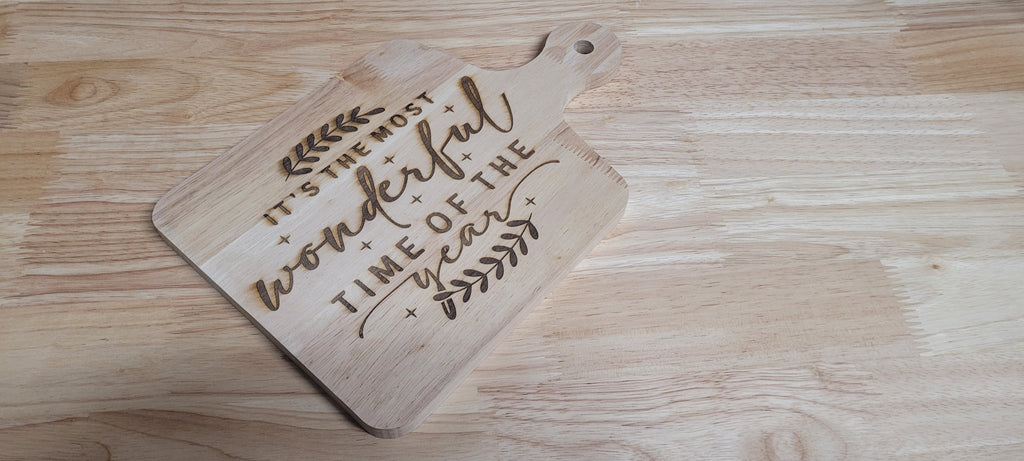 IT'S THE MOST
wonderful
TIME OF THE
year